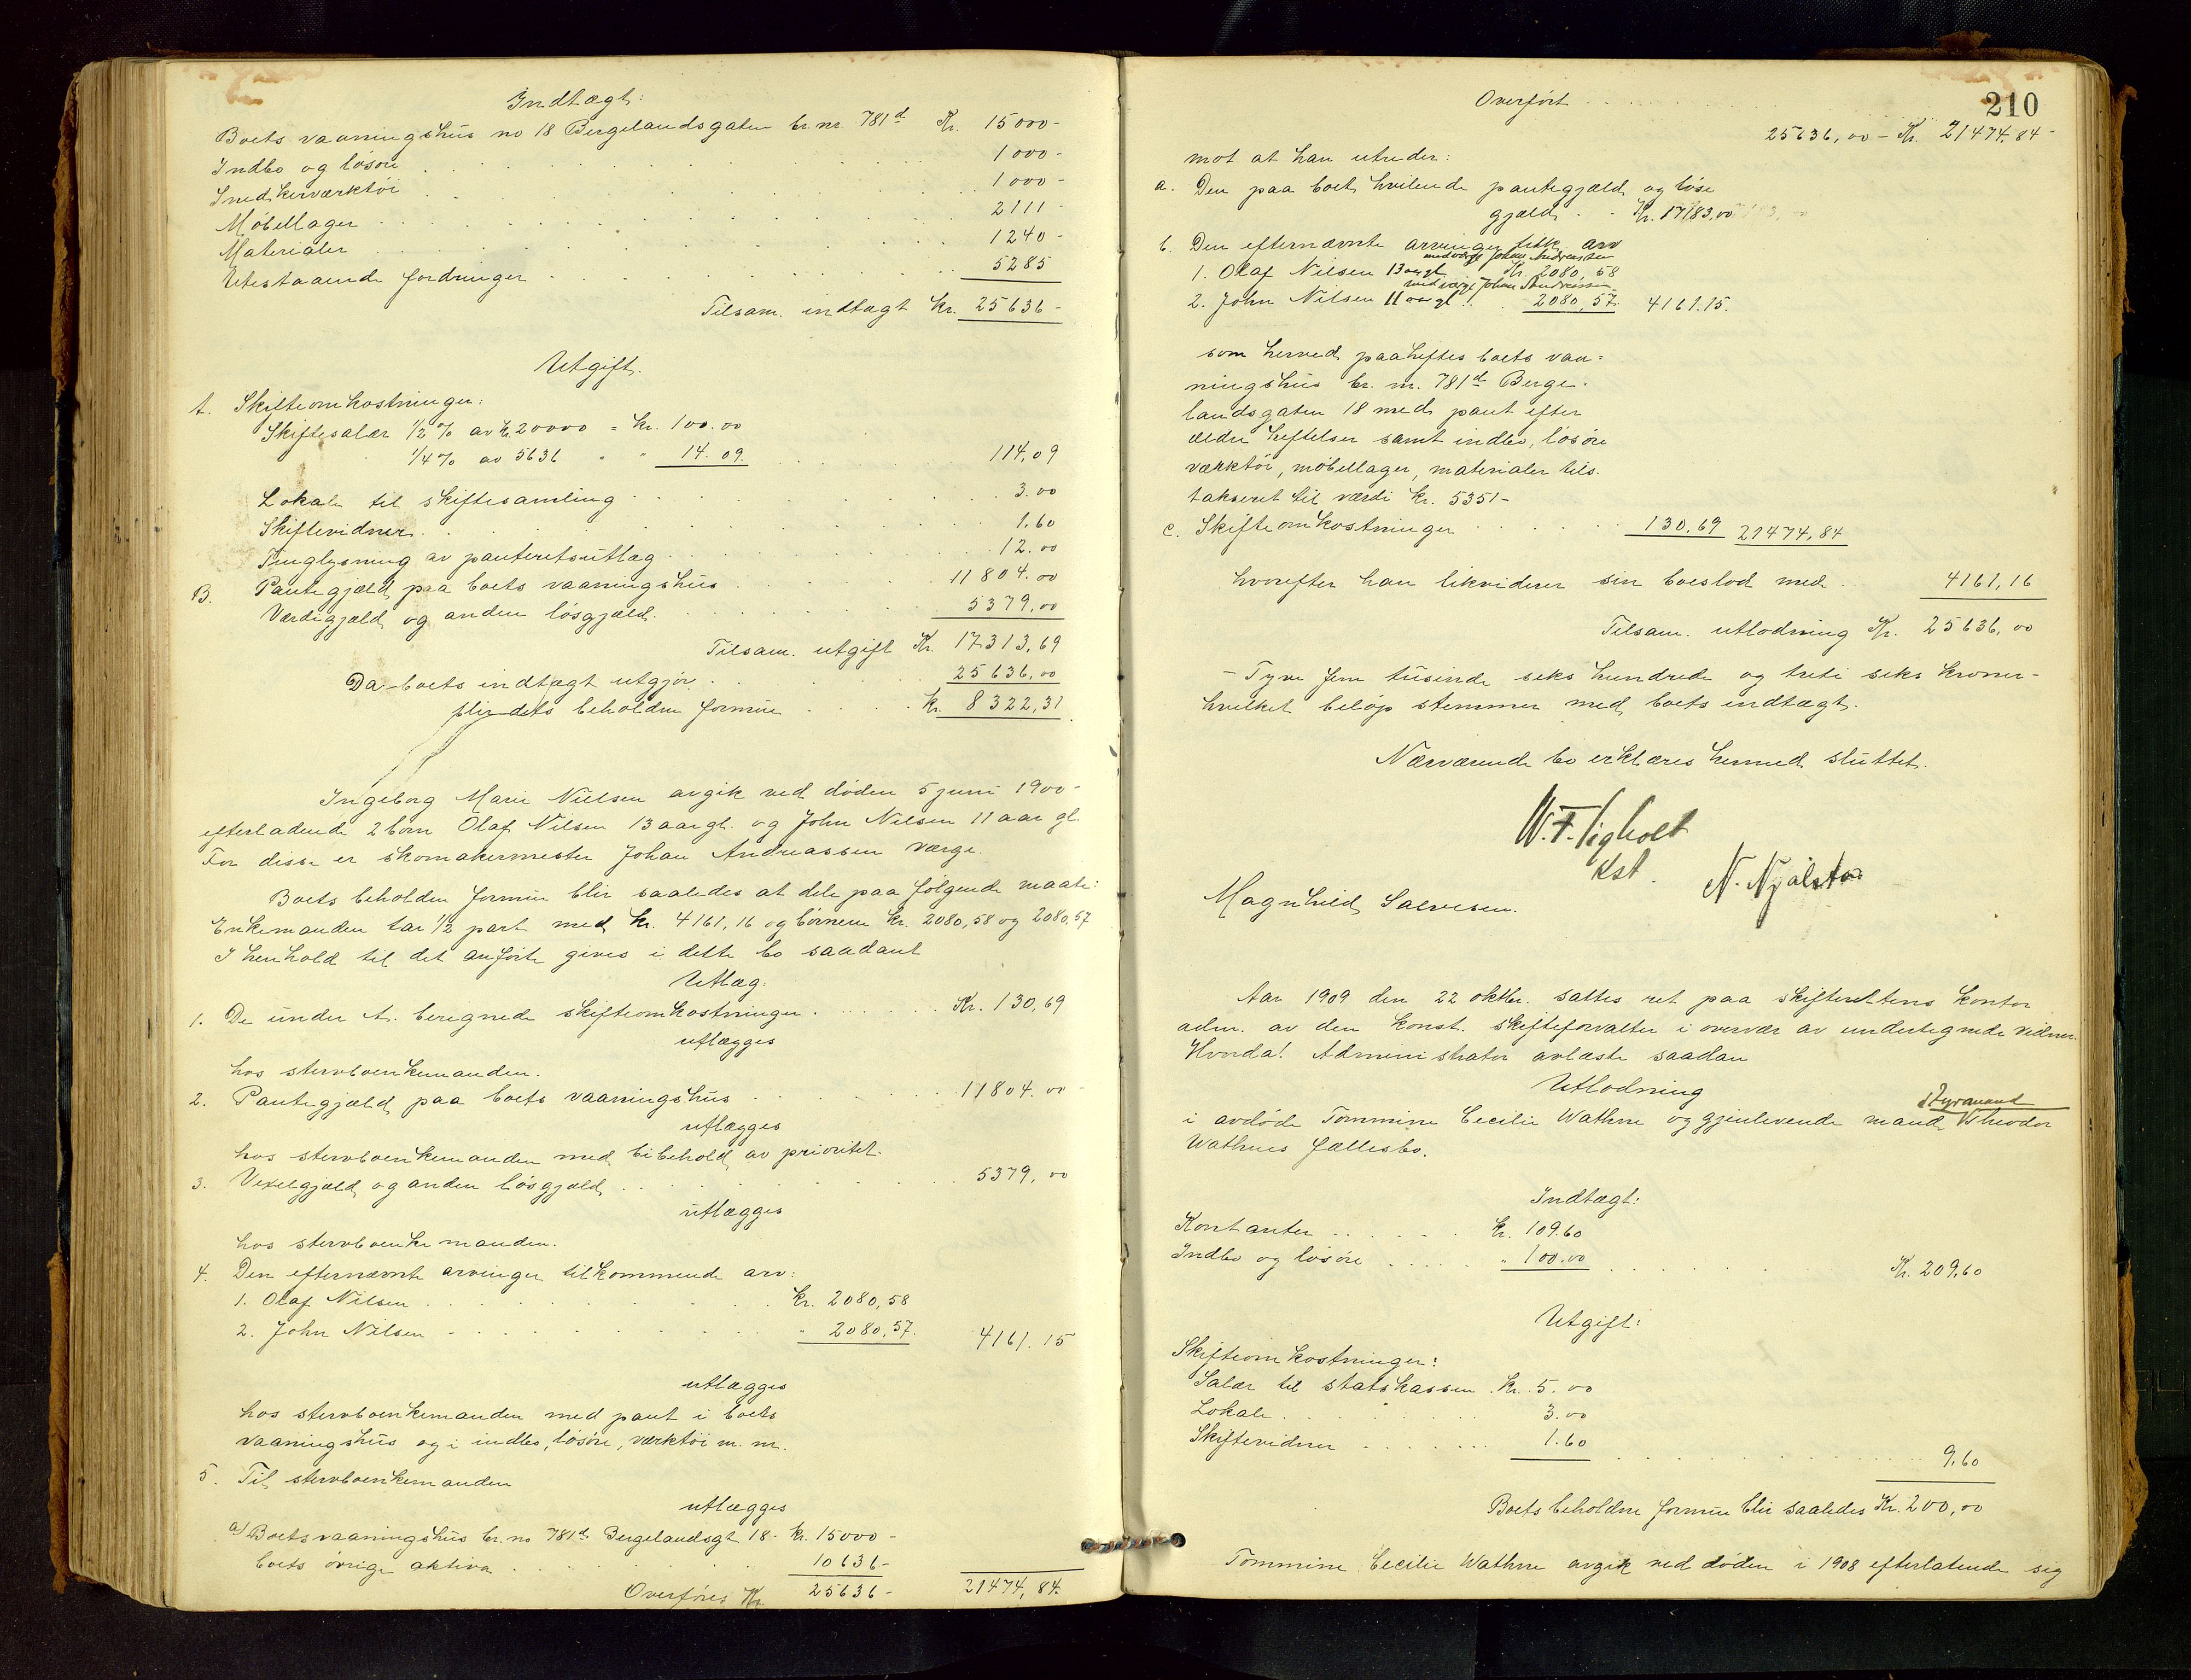 Indtægt:
Boets vaaningshus no 18 Bergelandsgaten br. nr. 781d Kr. 15000-
Indbo og løsøre . . . 1000-
Snedkerværktøi . . . 1000-
Møbellager . . . 2111-
Materialer . . . 1240-
Utestaaende fordringer . . . 5285
Tilsam. indtægt Kr. 25636-
Utgift.
A. Skifteomkostninger:
Skiftesalær 1/2 % av kr. 20000 = Kr. 100.00
1/4 % av 5636 " " 14.09 . . . 114,09
Lokale til skiftesamling . . . 3.00
Skiftevidner . . . 1.60
Tinglysning av panteretsutlæg . . . 12.00
B. Pantegjæld paa boets vaaningshus . . . 11804.00
Værdigjæld og anden løsgjæld . . . 5379.00
Tilsam. utgift Kr. 17313,69
Da boets indtægt utgjør . . . 25636,00
blir dets beholdne formue . . . kr. 8322,31
Ingeborg Marie Nielsen avgik ved døden 5 juni 1900-
efterladende 2 børn Olaf Nilsen 13 aar gl. og John Nilsen 11 aar gl.
For disse er skomakermester Johan Andreassen værge.
Boets beholdne formue blir saaledes at dele paa følgende maate:
Enkemanden tar 1/2 part med kr. 4161,16 og børnene kr. 2080,58 og 2080,57
I henhold til det anførte gives i dette bo saadant
Utlæg:
1. De under A. beregnede skifteomkostninger . . . Kr. 130,69
utlægges
hos stervboenkemanden.
2. Pantegjæld paa boets vaaningshus . . . 11804.00-
utlægges
hos stervboenkemanden med bibehold av prioritet.
3. Vexelgjæld og anden løsgjæld . . . 5379,00
utlægges
hos stervboenkemanden.
4. Den efternævnte arvinger tilkommende arv:
1. Olaf Nilsen . . . Kr. 2080,58
2. John Nilsen . . . " 2080,57. 4161.15
utlægges
hos stervboenkemanden med pant i boets
vaaningshus og i indbo, løsøre, værktøi m. m.
5. Til stervboenkemanden
utlægges
a) Boets vaaningshus br. no 781d Bergelandsgt 18- kr. 15000-
boets øvrige aktiva . . . 10636-
Overføres Kr. 25636- 21474,84.
210
Overført . . .
25636,00- Kr. 21474,84-
mot at han utreder:
a. Den paa boet hvilende pantegjæld og løse
gjæld . . Kr. 17183,00
b. Den efternævnte arvinger tilk. arv
med værge Johan Andreassen
1. Olaf Nilsen 13 aar gl. Kr. 2080,58
med værge Johan Andreassen
2. John Nilsen 11 aar gl. . . 2080,57. 4161.15.
som herved paaheftes boets vaa=
ningshus br. nr. 781d Berge-
landsgaten 18 med pant efter
ældre heftelser samt indbo, løsøre
værktøi, møbellager, materialer tils.
takseret til værdi kr. 5351-
c. Skifteomkostninger . . . 130.69 21474,84
hvorefter han likviderer sin boeslod med . 4161,16
Tilsam. utlodning Kr. 25636,00
- Tyve fem tusinde seks hundrede og treti seks kroner-
hvilket beløp stemmer med boets indtægt.
Nærværende bo erklæres hermed sluttet.
kst.
Magnhild Salvesen.
Aar 1909 den 22 oktbr. sattes ret paa skifterettens kontor
adm. av den konst. skifteforvalter i overvær av undertegnede vidner.
Hvorda! Administrator avlæste saadan
Utlodning
styrmand
i avdøde Tommine Cecilie Wathne og gjenlevende mand Theodor
Wathnes fællesbo.
Indtægt:
Kontanter . . . Kr. 109.60
Indbo og løsøre . . . " 100.00 . . . Kr. 209,60
Utgift:
Skifteomkostninger:
Salær til statskassen . Kr. 5.00
Lokale . . . 3.00
Skiftevidner . . . 1.60 . . . 9,60
Boets beholdne formue blir saaledes Kr. 200,00
Tommine Cecilie Wathne avgik ved døden i 1908 efterlatende sig